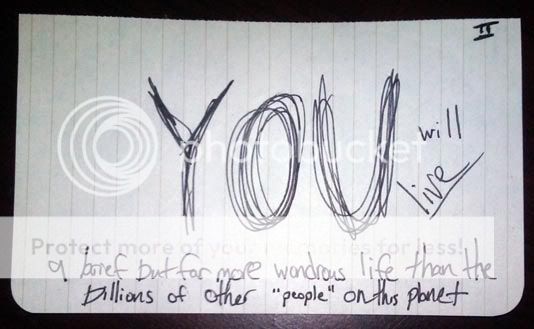 II
YOU
will
live
photobucket
Protect more of your memories for less!
a brief but far more wondrous life than the
billions of other "people" on this planet